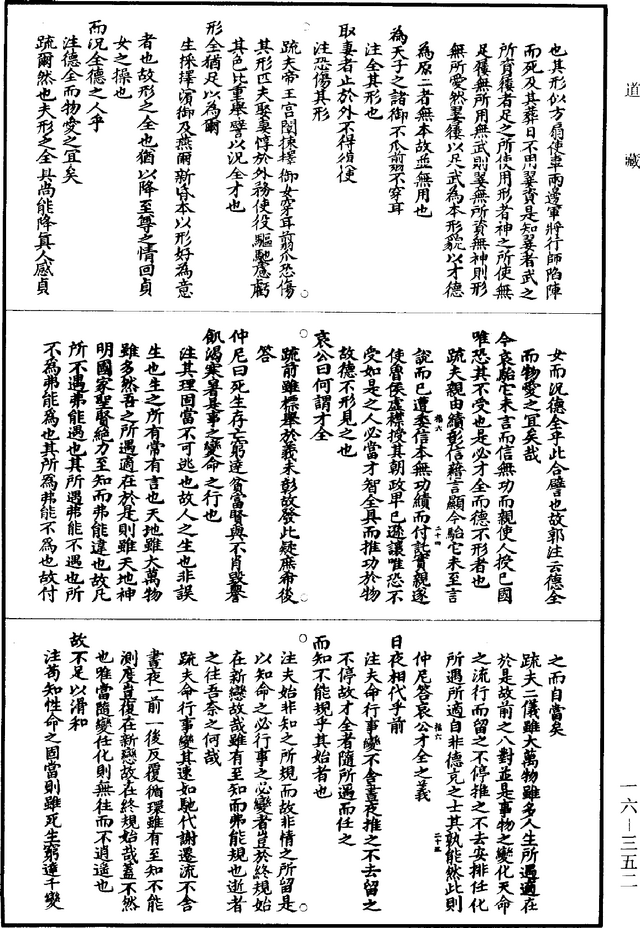 道藏
也其形似方扇使車兩邊軍將行師陷陣
而死及其葬日不用翣資是知翣者武之
所資屨者足之所使用形者神之所使無
足屨無所用無武則翣無所資無神則形
無所愛然翣屨以足武為本形貌以才德
為原二者無本故並無用也
為天子之諸御不爪翦不穿耳
注全其形也
取妻者止於外不得復使
注恐傷其形
疏夫帝王宮闈揀擇御女穿耳翦爪恐傷
其形匹夫娶妻停於外務使役驅馳慮虧
其色此重舉譬以況全才也
形全猶足以為爾
生採擇嬪御及燕爾新昏本以形好為意
者也故形之全也猶以降至尊之情回貞
女之操也
而況全德之人乎
注德全而物愛之宜矣
疏爾然也夫形之全具尚能降真人感貞
女而況德全乎此合譬也故郭注云德全
而物愛之宜矣哉
今哀駘它未言而信無功而親使人授己國
唯恐其不受也是必才全而德不形者也
疏夫親由績彰信藉言顯今駘它未至言
說而已遭委信本無功績而付託實親遂
使魯侯虛襟授其朝政卑己遜讓唯恐不
受如是之人必當才智全具而推功於物
故德不形見之也
哀公曰何謂才全
疏前雖標舉於義未彰故發此疑庶希後
答
仲尼曰死生存亡窮達貧富賢與不肖毀譽
飢渴寒暑是事之變命之行也
注其理固當不可逃也故人之生也非誤
生也生之所有常有言也天地雖大萬物
雖多然吾之所遇適在於是則雖天地神
明國家聖賢絕力至知而弗能違也故凡
所不遇弗能遇也其所遇弗能不遇也所
不為弗能為也其所為弗能不為也故付
之而自當矣
疏夫二儀雖大萬物雖多人生所遇適在
於是故前之八對並是事物之變化天命
之流行而留之不停推之不去安排任化
所遇所適自非德充之士其孰能然此則
仲尼答哀公才全之義
日夜相代乎前
注夫命行事變不舍晝夜推之不去留之
不停故才全者隨所遇而任之
而知不能規乎其始者也
注夫始非知之所規而故非情之所留是
以知命之必行事之必變者豈於終規始
在新戀故哉雖有至知而弗能規也逝者
之往吾奈之何哉
疏夫命行事變其速如馳代謝遷流不舍
晝夜一前一後反覆循環雖有至知不能
測度豈復在新戀故在終規始哉蓋不然
也唯當隨變任化則無往而不逍遙也
故不足以滑和
注苟知性命之固當則雖死生窮達千變
一六一三五二